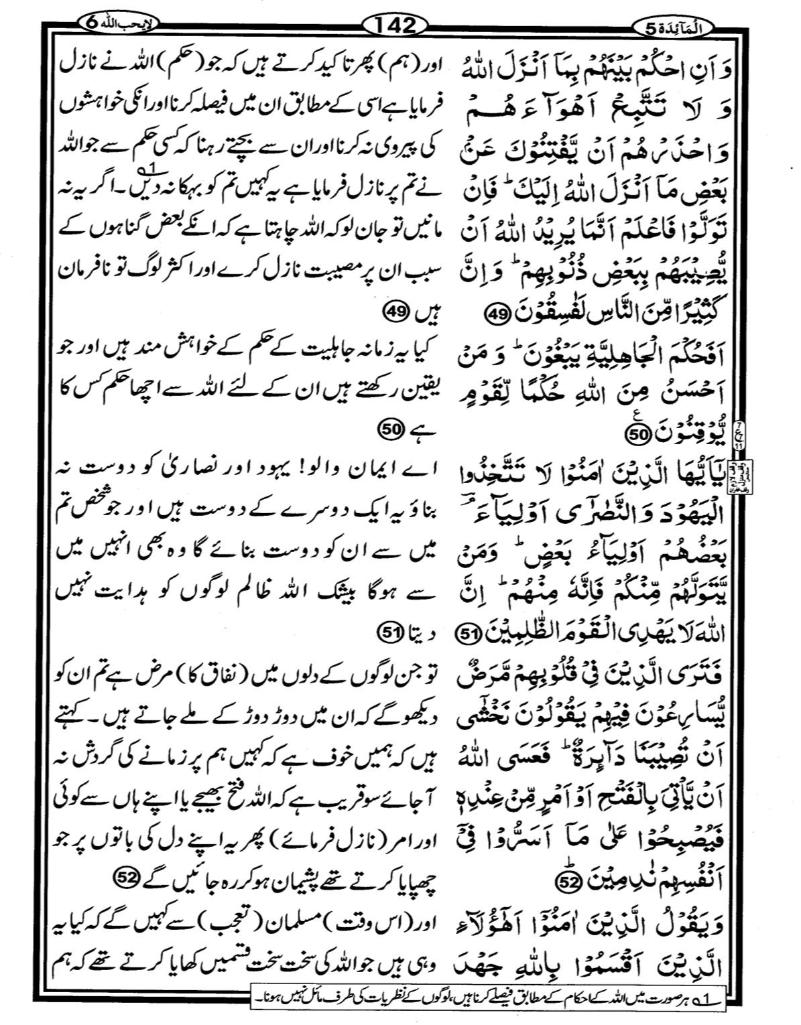 اَلْمَآئِدَة 5
142
لايحب الله 6
وَ اَنِ احْكُمْ بَيْنَهُمْ بِمَآ اَنْزَلَ اللهُ
وَ لَا تَتَّبِعْ اَهْوَآءَهُمْ
وَاحْذَرْهُمْ اَنْ يَّفْتِنُوْكَ عَنْۢ
بَعْضِ مَآ اَنْزَلَ اللهُ اِلَيْكَ ؕ فَاِنْ
تَوَلَّوْا فَاعْلَمْ اَنَّمَا يُرِيْدُ اللهُ اَنْ
يُّصِيْبَهُمْ بِبَعْضِ ذُنُوْبِهِمْ ؕ وَ اِنَّ
كَثِيْرًا مِّنَ النَّاسِ لَفٰسِقُوْنَ 49
اَفَحُكْمَ الْجَاهِلِيَّةِ يَبْغُوْنَ ؕ وَ مَنْ
اَحْسَنُ مِنَ اللهِ حُكْمًا لِّقَوْمٍ
يُّوْقِنُوْنَ 50 ع
يٰۤاَيُّهَا الَّذِيْنَ اٰمَنُوْا لَا تَتَّخِذُوا
الْيَهُوْدَ وَ النَّصٰرٰۤى اَوْلِيَآءَ ۘ
بَعْضُهُمْ اَوْلِيَآءُ بَعْضٍ ؕ وَمَنْ
يَّتَوَلَّهُمْ مِّنْكُمْ فَاِنَّهٗ مِنْهُمْ ؕ اِنَّ
اللهَ لَا يَهْدِى الْقَوْمَ الظّٰلِمِيْنَ 51
فَتَرَى الَّذِيْنَ فِيْ قُلُوْبِهِمْ مَّرَضٌ
يُّسَارِعُوْنَ فِيْهِمْ يَقُوْلُوْنَ نَخْشٰٓى
اَنْ تُصِيْبَنَا دَآئِرَةٌ ؕ فَعَسَى اللهُ
اَنْ يَّاْتِيَ بِالْفَتْحِ اَوْ اَمْرٍ مِّنْ عِنْدِهٖ
فَيُصْبِحُوْا عَلٰى مَآ اَسَرُّوْا فِيْۤ
اَنْفُسِهِمْ نٰدِمِيْنَ ؕ 52
وَ يَقُوْلُ الَّذِيْنَ اٰمَنُوْۤا اَهٰۤؤُلَآءِ
الَّذِيْنَ اَقْسَمُوْا بِاللهِ جَهْدَ
اور (ہم) پھر تاکید کرتے ہیں کہ جو (حکم) اللہ نے نازل
فرمایا ہے اسی کے مطابق ان میں فیصلہ کرنا اور انکی خواہشوں
کی پیروی نہ کرنا اور ان سے بچتے رہنا کہ کسی حکم سے جو اللہ
نے تم پر نازل فرمایا ہے یہ کہیں تم کو بہکا نہ دیں 1۔ اگر یہ نہ
مانیں تو جان لو کہ اللہ چاہتا ہے کہ انکے بعض گناہوں کے
سبب ان پر مصیبت نازل کرے اور اکثر لوگ تو نافرمان
ہیں 49
کیا یہ زمانہ جاہلیت کے حکم کے خواہش مند ہیں اور جو
یقین رکھتے ہیں ان کے لئے اللہ سے اچھا حکم کس کا
ہے 50
اے ایمان والو! یہود اور نصاریٰ کو دوست نہ
بناؤ یہ ایک دوسرے کے دوست ہیں اور جو شخص تم
میں سے ان کو دوست بنائے گا وہ بھی انہیں میں
سے ہوگا بیشک اللہ ظالم لوگوں کو ہدایت نہیں
دیتا 51
تو جن لوگوں کے دلوں میں (نفاق کا) مرض ہے تم ان کو
دیکھو گے کہ ان میں دوڑ دوڑ کے ملے جاتے ہیں۔ کہتے
ہیں کہ ہمیں خوف ہے کہ کہیں ہم پر زمانے کی گردش نہ
آجائے سو قریب ہے کہ اللہ فتح بھیجے یا اپنے ہاں سے کوئی
اور امر (نازل فرمائے) پھر یہ اپنے دل کی باتوں پر جو
چھپایا کرتے تھے پشیمان ہو کر رہ جائیں گے 52
اور (اس وقت) مسلمان (تعجب) سے کہیں گے کہ کیا یہ
وہی ہیں جو اللہ کی سخت سخت قسمیں کھایا کرتے تھے کہ ہم
1 ہر صورت میں اللہ کے احکام کے مطابق فیصلے کرنا ہیں، لوگوں کے نظریات کی طرف مائل نہیں ہونا۔